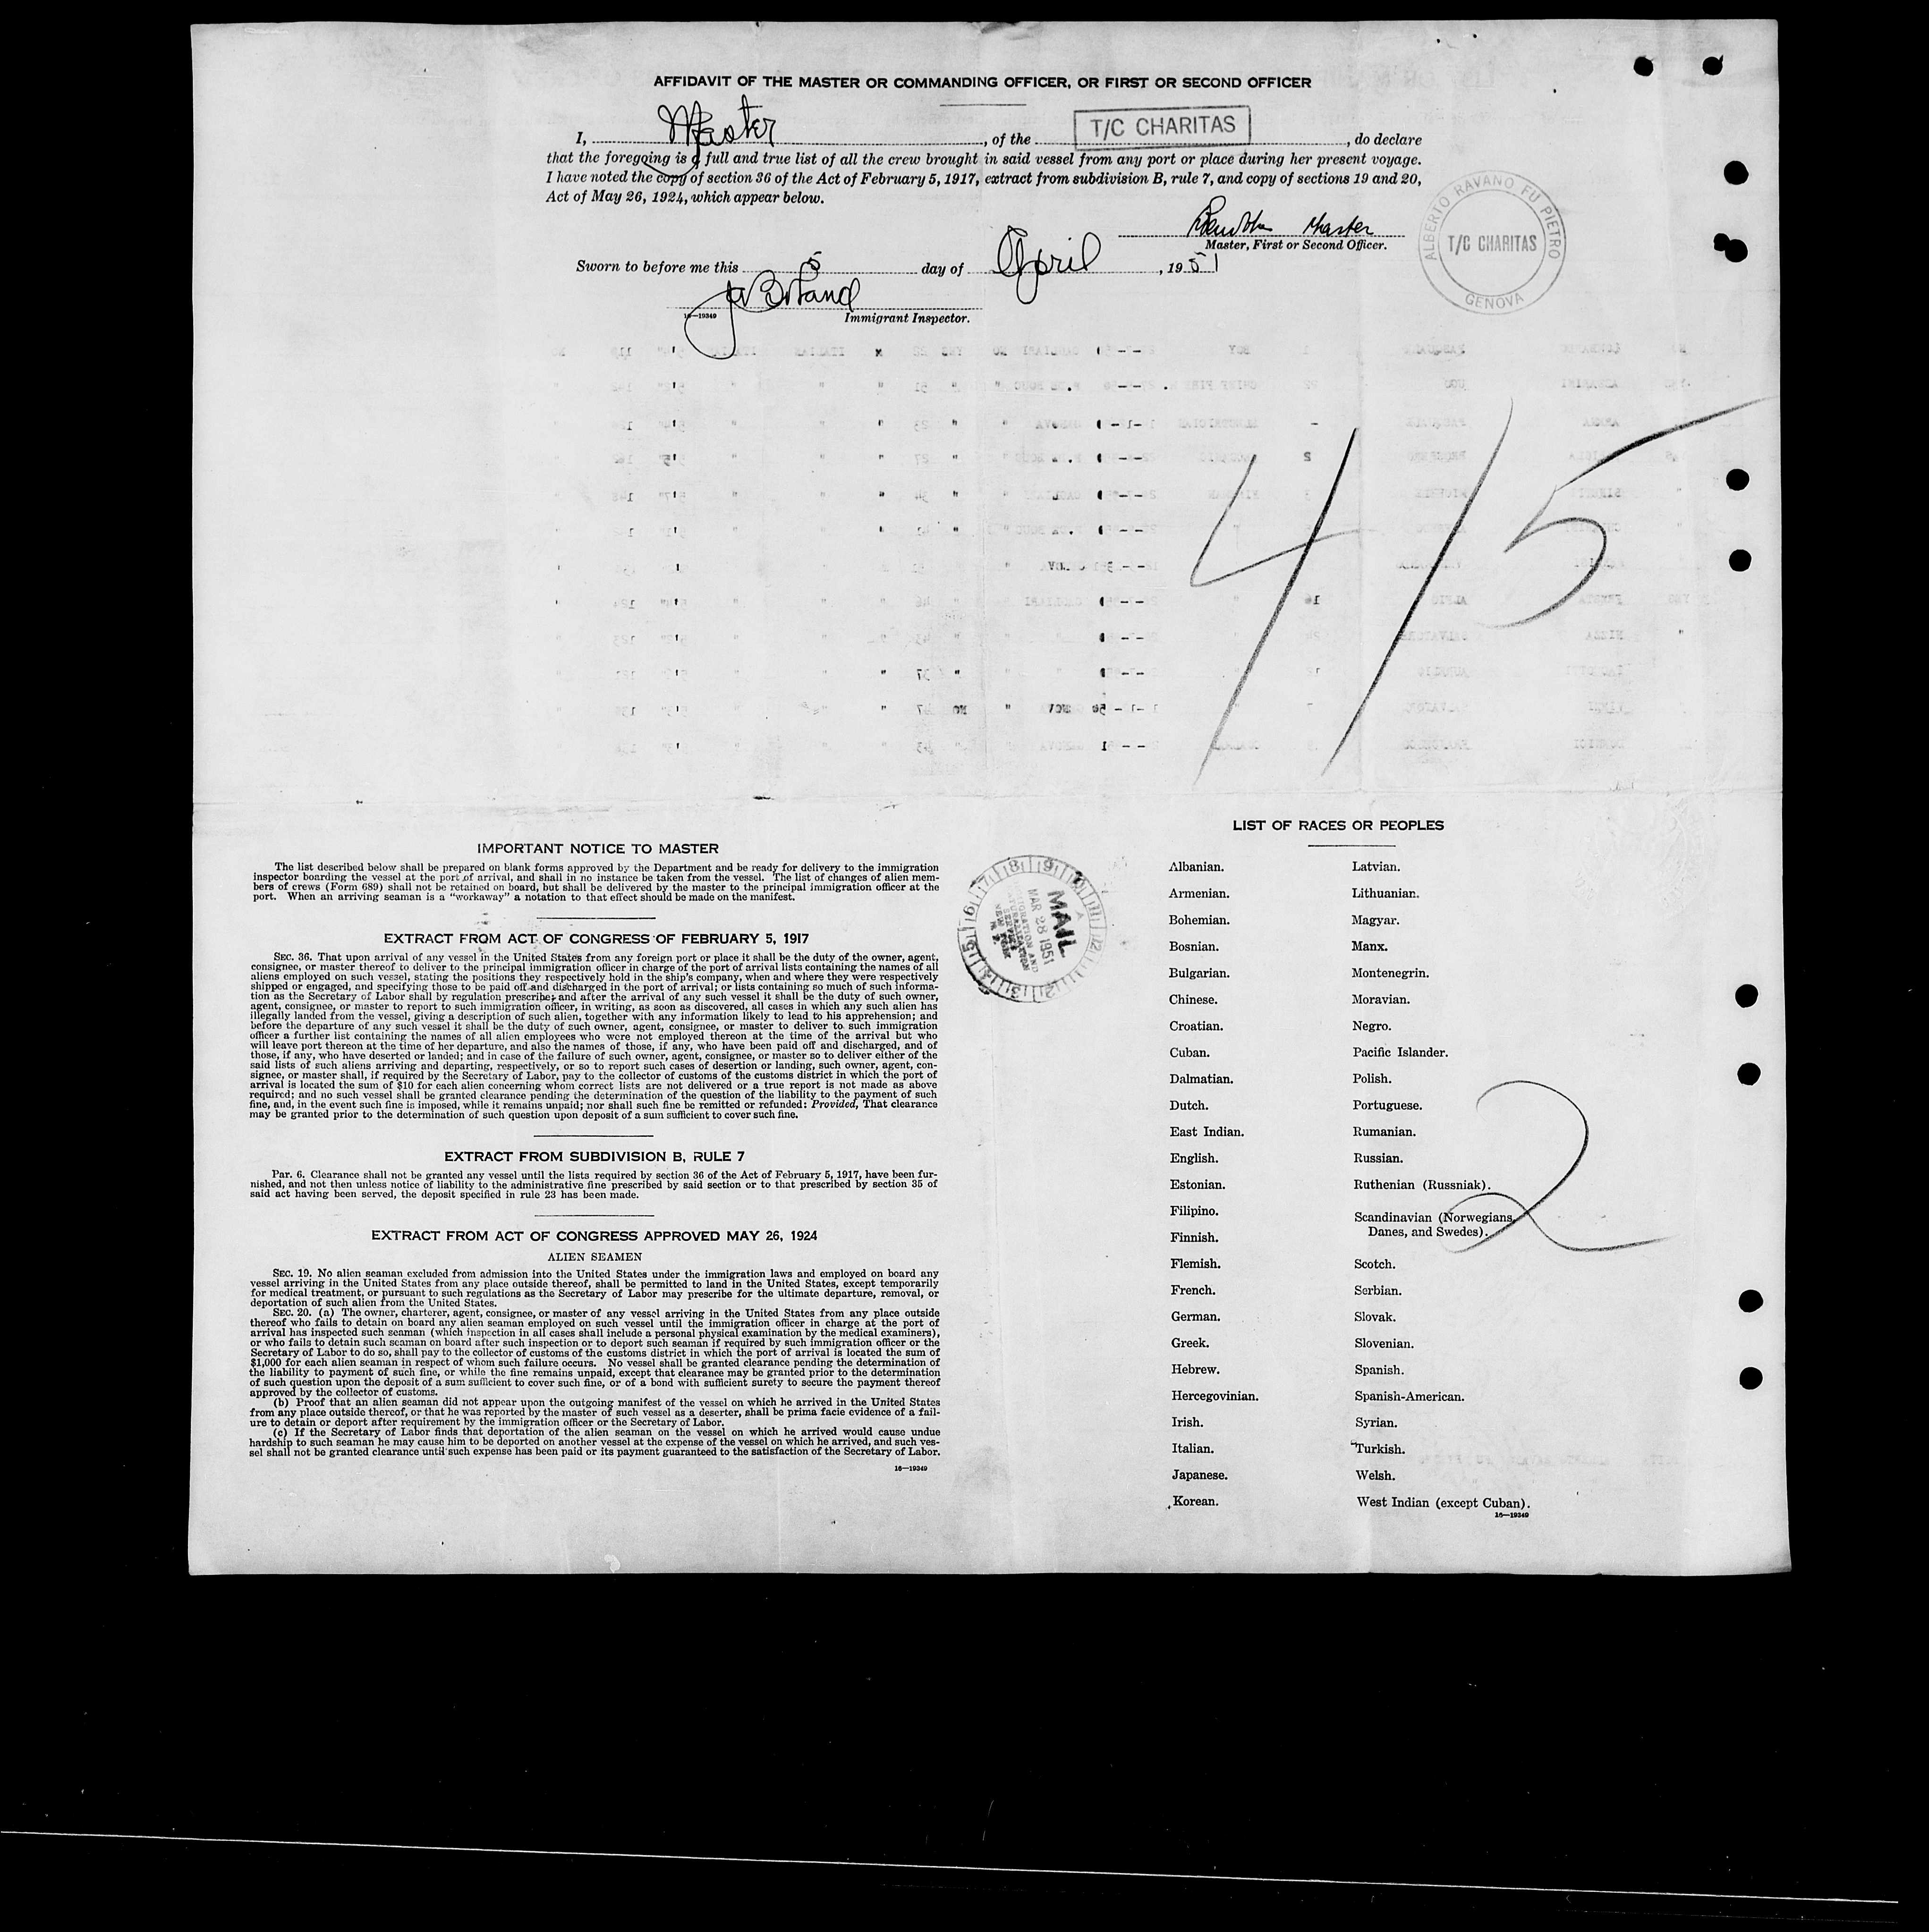 AFFIDAVIT OF THE MASTER OR COMMANDING OFFICER, OR FIRST OR SECOND OFFICER
I, Master, of the T/C CHARITAS, do declare
that the foregoing is a full and true list of all the crew brought in said vessel from any port or place during her present voyage.
I have noted the copy of section 36 of the Act of February 5, 1917, extract from subdivision B, rule 7, and copy of sections 19 and 20,
Act of May 26, 1924, which appear below.
Master
Master, First or Second Officer.
ALBERTO RAVANO FU PIETRO
T/C CHARITAS
GENOVA
Sworn to before me this 5 day of April, 1951
16—19349
Immigrant Inspector.
4/5
IMPORTANT NOTICE TO MASTER
The list described below shall be prepared on blank forms approved by the Department and be ready for delivery to the immigration
inspector boarding the vessel at the port of arrival, and shall in no instance be taken from the vessel. The list of changes of alien mem-
bers of crews (Form 689) shall not be retained on board, but shall be delivered by the master to the principal immigration officer at the
port. When an arriving seaman is a "workaway" a notation to that effect should be made on the manifest.
EXTRACT FROM ACT OF CONGRESS OF FEBRUARY 5, 1917
SEC. 36. That upon arrival of any vessel in the United States from any foreign port or place it shall be the duty of the owner, agent,
consignee, or master thereof to deliver to the principal immigration officer in charge of the port of arrival lists containing the names of all
aliens employed on such vessel, stating the positions they respectively hold in the ship's company, when and where they were respectively
shipped or engaged, and specifying those to be paid off and discharged in the port of arrival; or lists containing so much of such informa-
tion as the Secretary of Labor shall by regulation prescribe; and after the arrival of any such vessel it shall be the duty of such owner,
agent, consignee, or master to report to such immigration officer, in writing, as soon as discovered, all cases in which any such alien has
illegally landed from the vessel, giving a description of such alien, together with any information likely to lead to his apprehension; and
before the departure of any such vessel it shall be the duty of such owner, agent, consignee, or master to deliver to such immigration
officer a further list containing the names of all alien employees who were not employed thereon at the time of the arrival but who
will leave port thereon at the time of her departure, and also the names of those, if any, who have been paid off and discharged, and of
those, if any, who have deserted or landed; and in case of the failure of such owner, agent, consignee, or master so to deliver either of the
said lists of such aliens arriving and departing, respectively, or so to report such cases of desertion or landing, such owner, agent, con-
signee, or master shall, if required by the Secretary of Labor, pay to the collector of customs of the customs district in which the port of
arrival is located the sum of $10 for each alien concerning whom correct lists are not delivered or a true report is not made as above
required; and no such vessel shall be granted clearance pending the determination of the question of the liability to the payment of such
fine, and, in the event such fine is imposed, while it remains unpaid; nor shall such fine be remitted or refunded: Provided, That clearance
may be granted prior to the determination of such question upon deposit of a sum sufficient to cover such fine.
EXTRACT FROM SUBDIVISION B, RULE 7
Par. 6. Clearance shall not be granted any vessel until the lists required by section 36 of the Act of February 5, 1917, have been fur-
nished, and not then unless notice of liability to the administrative fine prescribed by said section or to that prescribed by section 35 of
said act having been served, the deposit specified in rule 23 has been made.
EXTRACT FROM ACT OF CONGRESS APPROVED MAY 26, 1924
ALIEN SEAMEN
SEC. 19. No alien seaman excluded from admission into the United States under the immigration laws and employed on board any
vessel arriving in the United States from any place outside thereof, shall be permitted to land in the United States, except temporarily
for medical treatment, or pursuant to such regulations as the Secretary of Labor may prescribe for the ultimate departure, removal, or
deportation of such alien from the United States.
SEC. 20. (a) The owner, charterer, agent, consignee, or master of any vessel arriving in the United States from any place outside
thereof who fails to detain on board any alien seaman employed on such vessel until the immigration officer in charge at the port of
arrival has inspected such seaman (which inspection in all cases shall include a personal physical examination by the medical examiners),
or who fails to detain such seaman on board after such inspection or to deport such seaman if required by such immigration officer or the
Secretary of Labor to do so, shall pay to the collector of customs of the customs district in which the port of arrival is located the sum of
$1,000 for each alien seaman in respect of whom such failure occurs. No vessel shall be granted clearance pending the determination of
the liability to payment of such fine, or while the fine remains unpaid, except that clearance may be granted prior to the determination
of such question upon the deposit of a sum sufficient to cover such fine, or of a bond with sufficient surety to secure the payment thereof
approved by the collector of customs.
(b) Proof that an alien seaman did not appear upon the outgoing manifest of the vessel on which he arrived in the United States
from any place outside thereof, or that he was reported by the master of such vessel as a deserter, shall be prima facie evidence of a fail-
ure to detain or deport after requirement by the immigration officer or the Secretary of Labor.
(c) If the Secretary of Labor finds that deportation of the alien seaman on the vessel on which he arrived would cause undue
hardship to such seaman he may cause him to be deported on another vessel at the expense of the vessel on which he arrived, and such ves-
sel shall not be granted clearance until such expense has been paid or its payment guaranteed to the satisfaction of the Secretary of Labor.
16—19349
MAIL
MAR 28 1951
LIST OF RACES OR PEOPLES
Albanian.
Armenian.
Bohemian.
Bosnian.
Bulgarian.
Chinese.
Croatian.
Cuban.
Dalmatian.
Dutch.
East Indian.
English.
Estonian.
Filipino.
Finnish.
Flemish.
French.
German.
Greek.
Hebrew.
Hercegovinian.
Irish.
Italian.
Japanese.
Korean.
Latvian.
Lithuanian.
Magyar.
Manx.
Montenegrin.
Moravian.
Negro.
Pacific Islander.
Polish.
Portuguese.
Rumanian.
Russian.
Ruthenian (Russniak).
Scandinavian (Norwegians,
Danes, and Swedes).
Scotch.
Serbian.
Slovak.
Slovenian.
Spanish.
Spanish-American.
Syrian.
Turkish.
Welsh.
West Indian (except Cuban).
16—19349
2